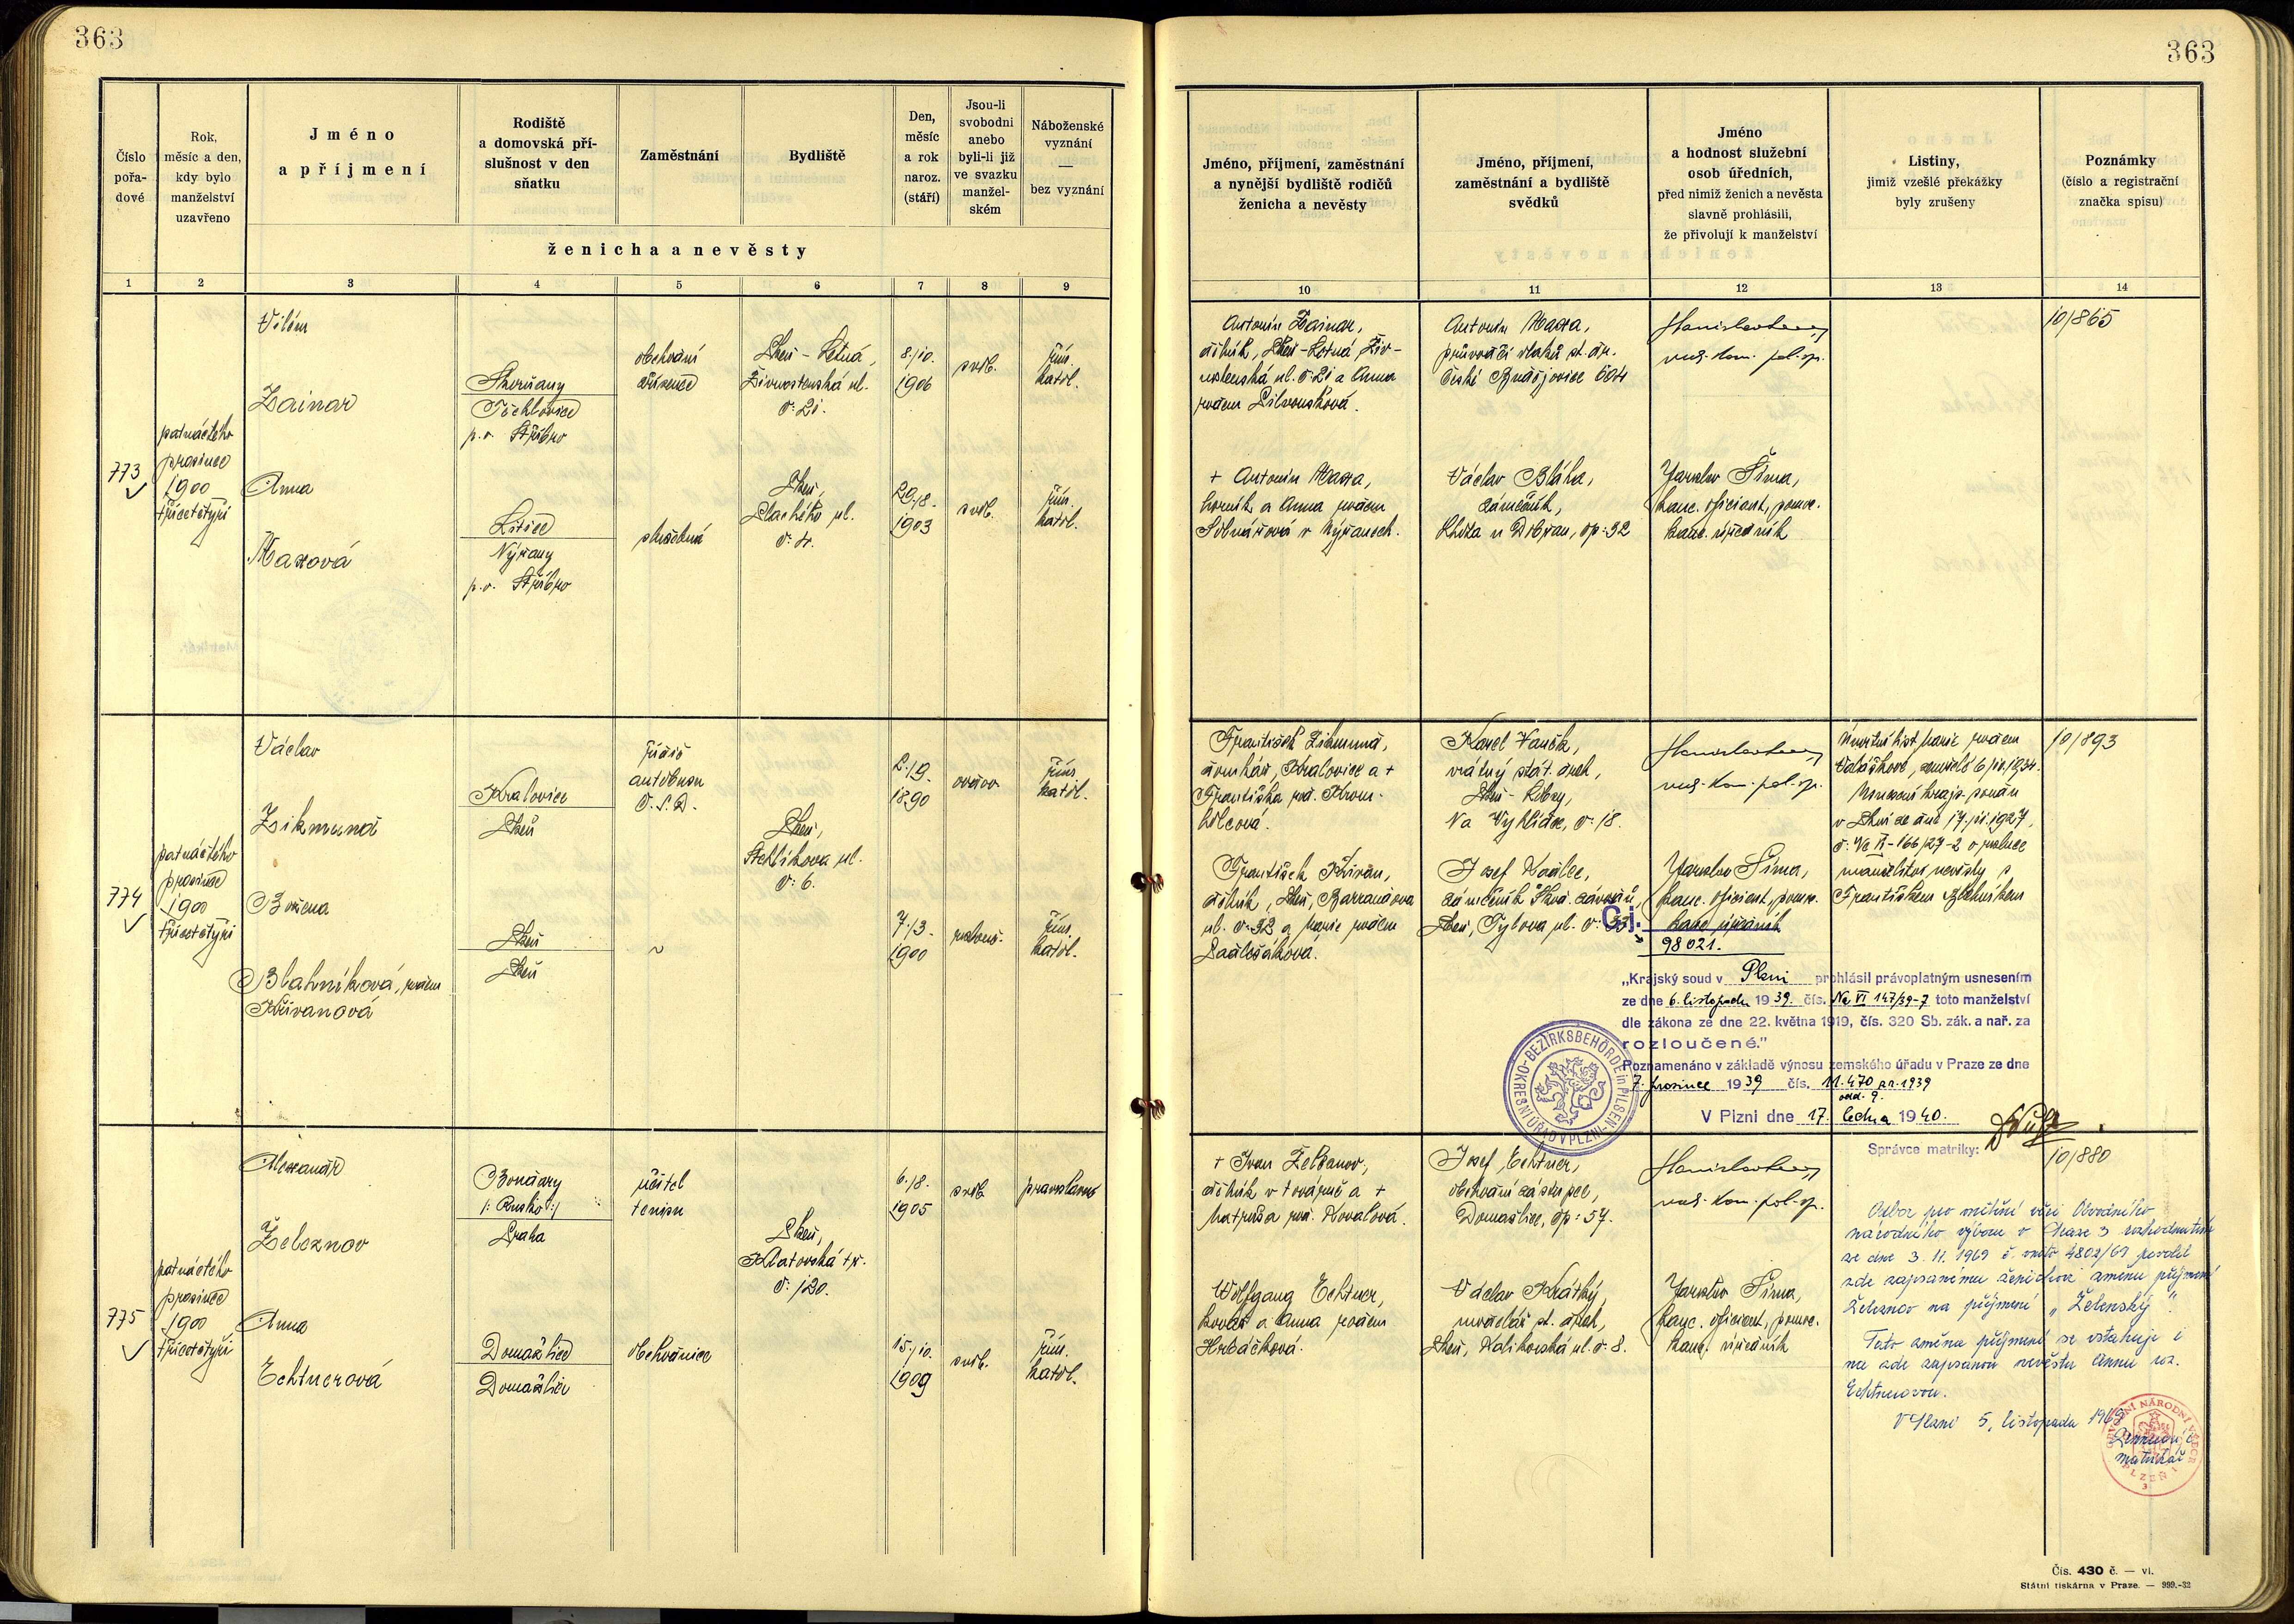 363
363
Číslo
pořa-
dové
Rok,
měsíc a den,
kdy bylo
manželství
uzavřeno
Jméno
a příjmení
Rodiště
a domovská pří-
slušnost v den
sňatku
Zaměstnání
Bydliště
Den,
měsíc
a rok
naroz.
(stáří)
Jsou-li
svobodni
anebo
byli-li již
ve svazku
manžel-
ském
Náboženské
vyznání
—
bez vyznání
ženicha a nevěsty
1 2 3 4 5 6 7 8 9
Jméno, příjmení, zaměstnání
a nynější bydliště rodičů
ženicha a nevěsty
Jméno, příjmení,
zaměstnání a bydliště
svědků
Jméno
a hodnost služební
osob úředních,
před nimiž ženich a nevěsta
slavně prohlásili,
že přivolují k manželství
Listiny,
jimiž vzešlé překážky
byly zrušeny
Poznámky
(číslo a registrační
značka spisu)
10 11 12 13 14
773
patnáctého
prosince
1900
třicetčtyři
Vilém
Zainar
p. o. Stříbro
obchodní
zřízenec
Plzeň - Letná,
Živnostenská ul.
č. 21.
8./10.
1906
svob.
řím.
katol.
Anna
Maxová
Litice
Nýřany
p. o. Stříbro
služebná
Plzeň,
Plachého ul.
č. 4.
29./8.
1903
svob.
řím.
katol.
Antonín Zainar,
dělník, Plzeň-Letná, Živ-
nostenská ul. č. 21 a Anna
+ Antonín Maxa,
horník a Anna rozem
v Nýřanech.
Antonín Maxa,
průvodčí vlaků st. dr.
České Budějovice 604
Václav Bláha,
zámečník,
Lhota u Dobřan, čp: 32
rad. kom. pol. sp.
Jaroslav Šíma,
kanc. oficiant, pomoc.
kanc. úředník
10/865
774
patnáctého
prosince
1900
třicetčtyři
Václav
Zikmund
Kralovice
Plzeň
řidič
autobusu
Č. S. D.
Plzeň,
Stehlíkova ul.
č: 6.
2./9.
1890
vdovec
řím.
katol.
Božena
Blahníková, rozem
Křivanová
Plzeň
Plzeň
~
7./3.
1900
rozlouč.
řím.
katol.
František Zikmund,
domkář, Kralovice a +
Františka roz. Krou-
František Křivan,
dělník, Plzeň, Barrandova
ul. č. 32 a Marie rozem
Karel Vaněk,
vrátný stát. drah,
Plzeň - Lobzy,
Na Vyhlídce, č: 18.
Josef Kadlec,
zámečník Škod. závodů,
Plzeň, Tylova ul. č: 33.
rad. kom. pol. sp.
Jaroslav Šíma,
kanc. oficiant, pomoc.
kanc. úředník
Úmrtní list Marie rozem
Valáškové, zemřelé 6/10.1934.
Usnesení krajs. soudu
v Plzni ze dne 17./11.1927,
č: Nc II-166/27-2 o rozluce
manželství nevěsty s
Františkem Blahníkem
10/893
Čj.
98021.
„Krajský soud v Plzni prohlásil právoplatným usnesením
ze dne 6. listopadu 1939. čís. Nc VI 147/39-7 toto manželství
dle zákona ze dne 22. května 1919, čís. 320 Sb. zák. a nař. za
rozloučené."
Poznamenáno v základě výnosu zemského úřadu v Praze ze dne
7. prosince 1939 čís. 11.470 pr. 1939
odd. 9.
V Plzni dne 17. ledna 1940.
Správce matriky:
BEZIRKSBEHÖRDE in PILSEN
OKRESNÍ ÚŘAD V PLZNI
775
patnáctého
prosince
1900
třicetčtyři
Alexandr
Železnov
Bondary
/: Rusko :/
Praha
učitel
tenisu
Plzeň,
Klatovská tř.
č: 120.
6./8.
1905
svob.
pravoslavné
Anna
Echtnerová
Domažlice
Domažlice
obchodnice
15./10.
1909
svob.
řím.
katol.
+ Ivan Železnov,
dělník v továrně a +
Matruša roz. Kovalová.
Wolfgang Echtner,
kovář a Anna rozem
Hrbáčková.
Josef Echtner,
obchodní zástupce,
Domažlice, čp: 57.
Václav Krátký,
modelář st. drah,
Plzeň, Kalikovská ul. č. 8.
rad. kom. pol. sp.
Jaroslav Šíma,
kanc. oficiant, pomoc.
kanc. úředník
10/880
Odbor pro vnitřní věci Obvodního
národního výboru v Praze 3 rozhodnutím
ze dne 3. 11. 1969 č. vnitř 4802/69 povolil
zde zapsanému ženichovi změnu příjmení
Železnov na příjmení „Želenský".
Tato změna příjmení se vztahuje i
na zde zapsanou nevěstu Annu roz.
Echtnerovou.
V Plzni 5. listopadu 1969
matrikář
Čís. 430 č. — vl.
Státní tiskárna v Praze. — 999.-32